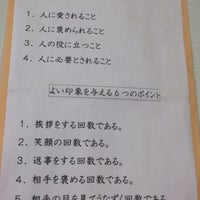 1．人に愛されること
2．人に褒められること
3．人の役に立つこと
4．人に必要とされること
よい印象を与える6つのポイント
1．挨拶をする回数である。
2．笑顔の回数である。
3．返事をする回数である。
4．相手を褒める回数である。
5．相手の目を見てうなずく回数である